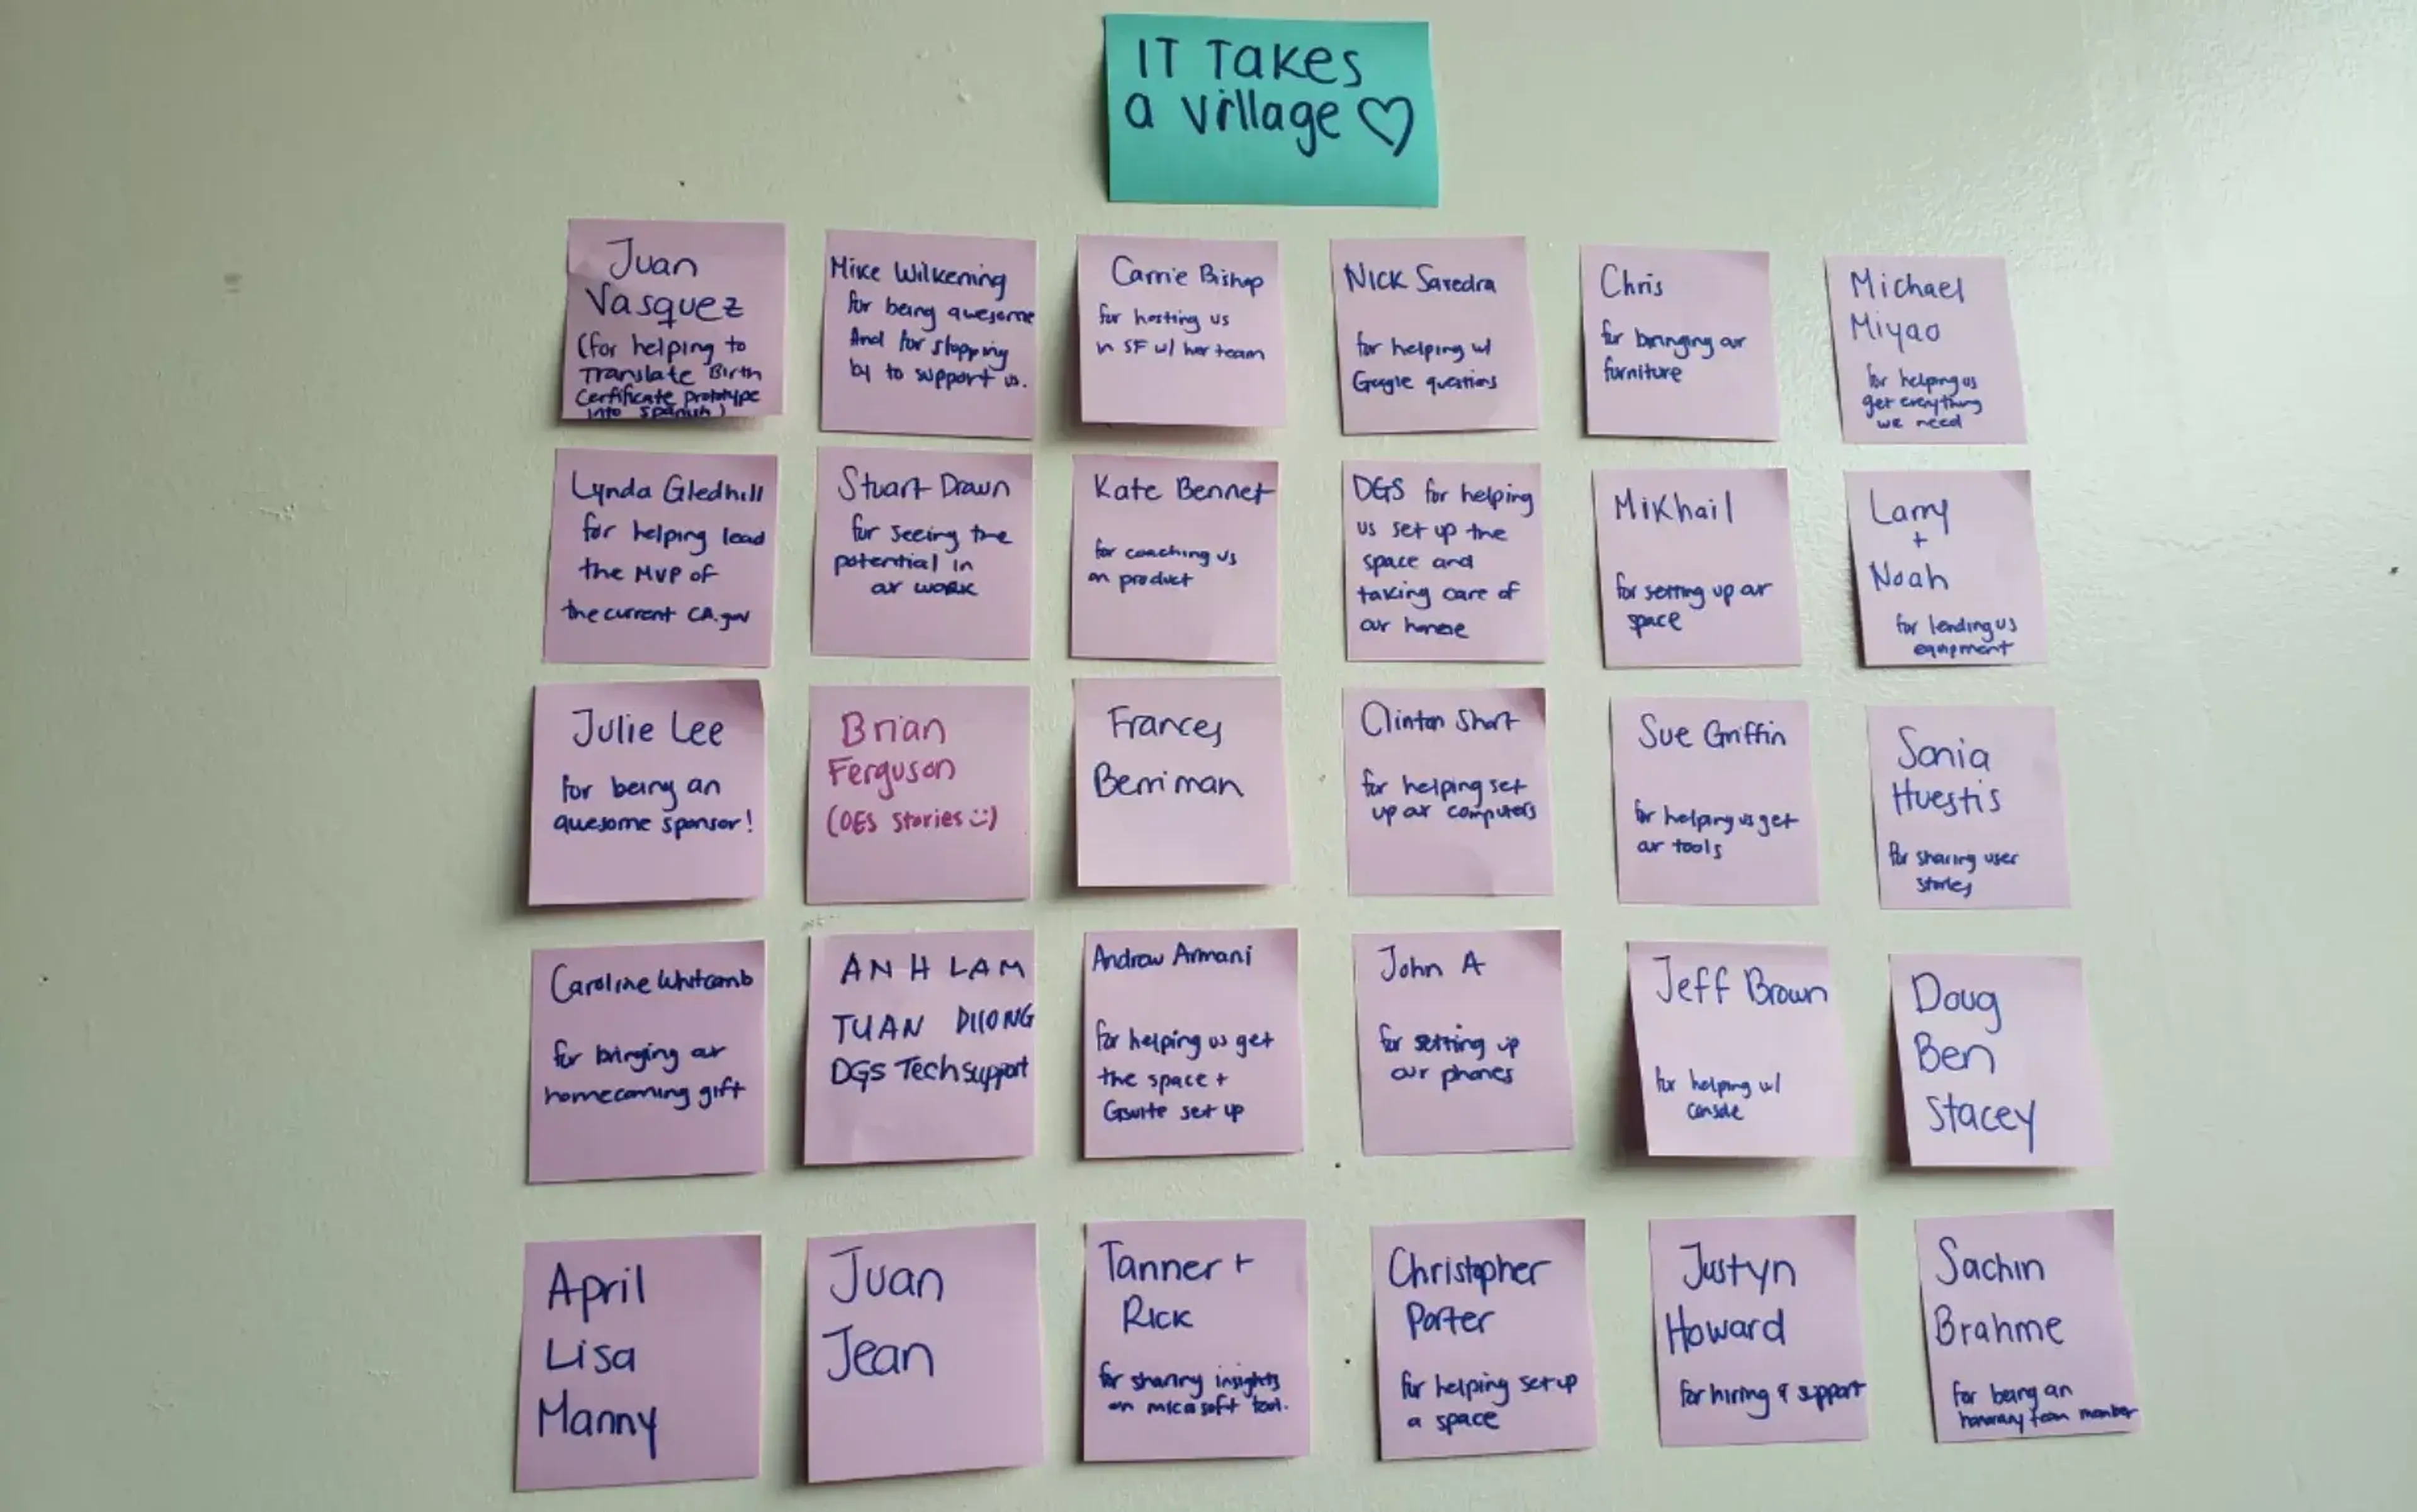 IT Takes
a village ♡
Juan
Vasquez
(for helping to
Translate Birth
Cerfificate prototype
into spanish)
Mike Wilkening
for being awesome
And for stopping
by to support us.
Carrie Bishop
for hosting us
in SF w/ her team
Nick Savedra
for helping w/
Google questions
Chris
for bringing our
furniture
Michael
Miyao
for helping us
get everything
we need
Lynda Gledhill
for helping lead
the MVP of
the current CA.gov
Stuart Drown
for seeing the
potential in
our work
Kate Bennet
for coaching us
on product
DGS for helping
us set up the
space and
taking care of
our home
Mikhail
for setting up our
space
Larry
+
Noah
for lending us
equipment
Julie Lee
for being an
awesome sponsor!
Brian
Ferguson
(OES stories :))
Frances
Berriman
Clinton Short
for helping set
up our computers
Sue Griffin
for helping us get
our tools
Sonia
Huestis
for sharing user
stories
Caroline Whitcomb
for bringing our
homecoming gift
ANH LAM
TUAN DUONG
DGS Tech support
Andrew Armani
for helping us get
the space +
Gsuite set up
John A
for setting up
our phones
Jeff Brown
for helping w/
console
Doug
Ben
Stacey
April
Lisa
Manny
Juan
Jean
Tanner +
Rick
for sharing insights
on microsoft tool.
Christopher
Porter
for helping set up
a space
Justyn
Howard
for hiring & support
Sachin
Brahme
for being an
honorary team member